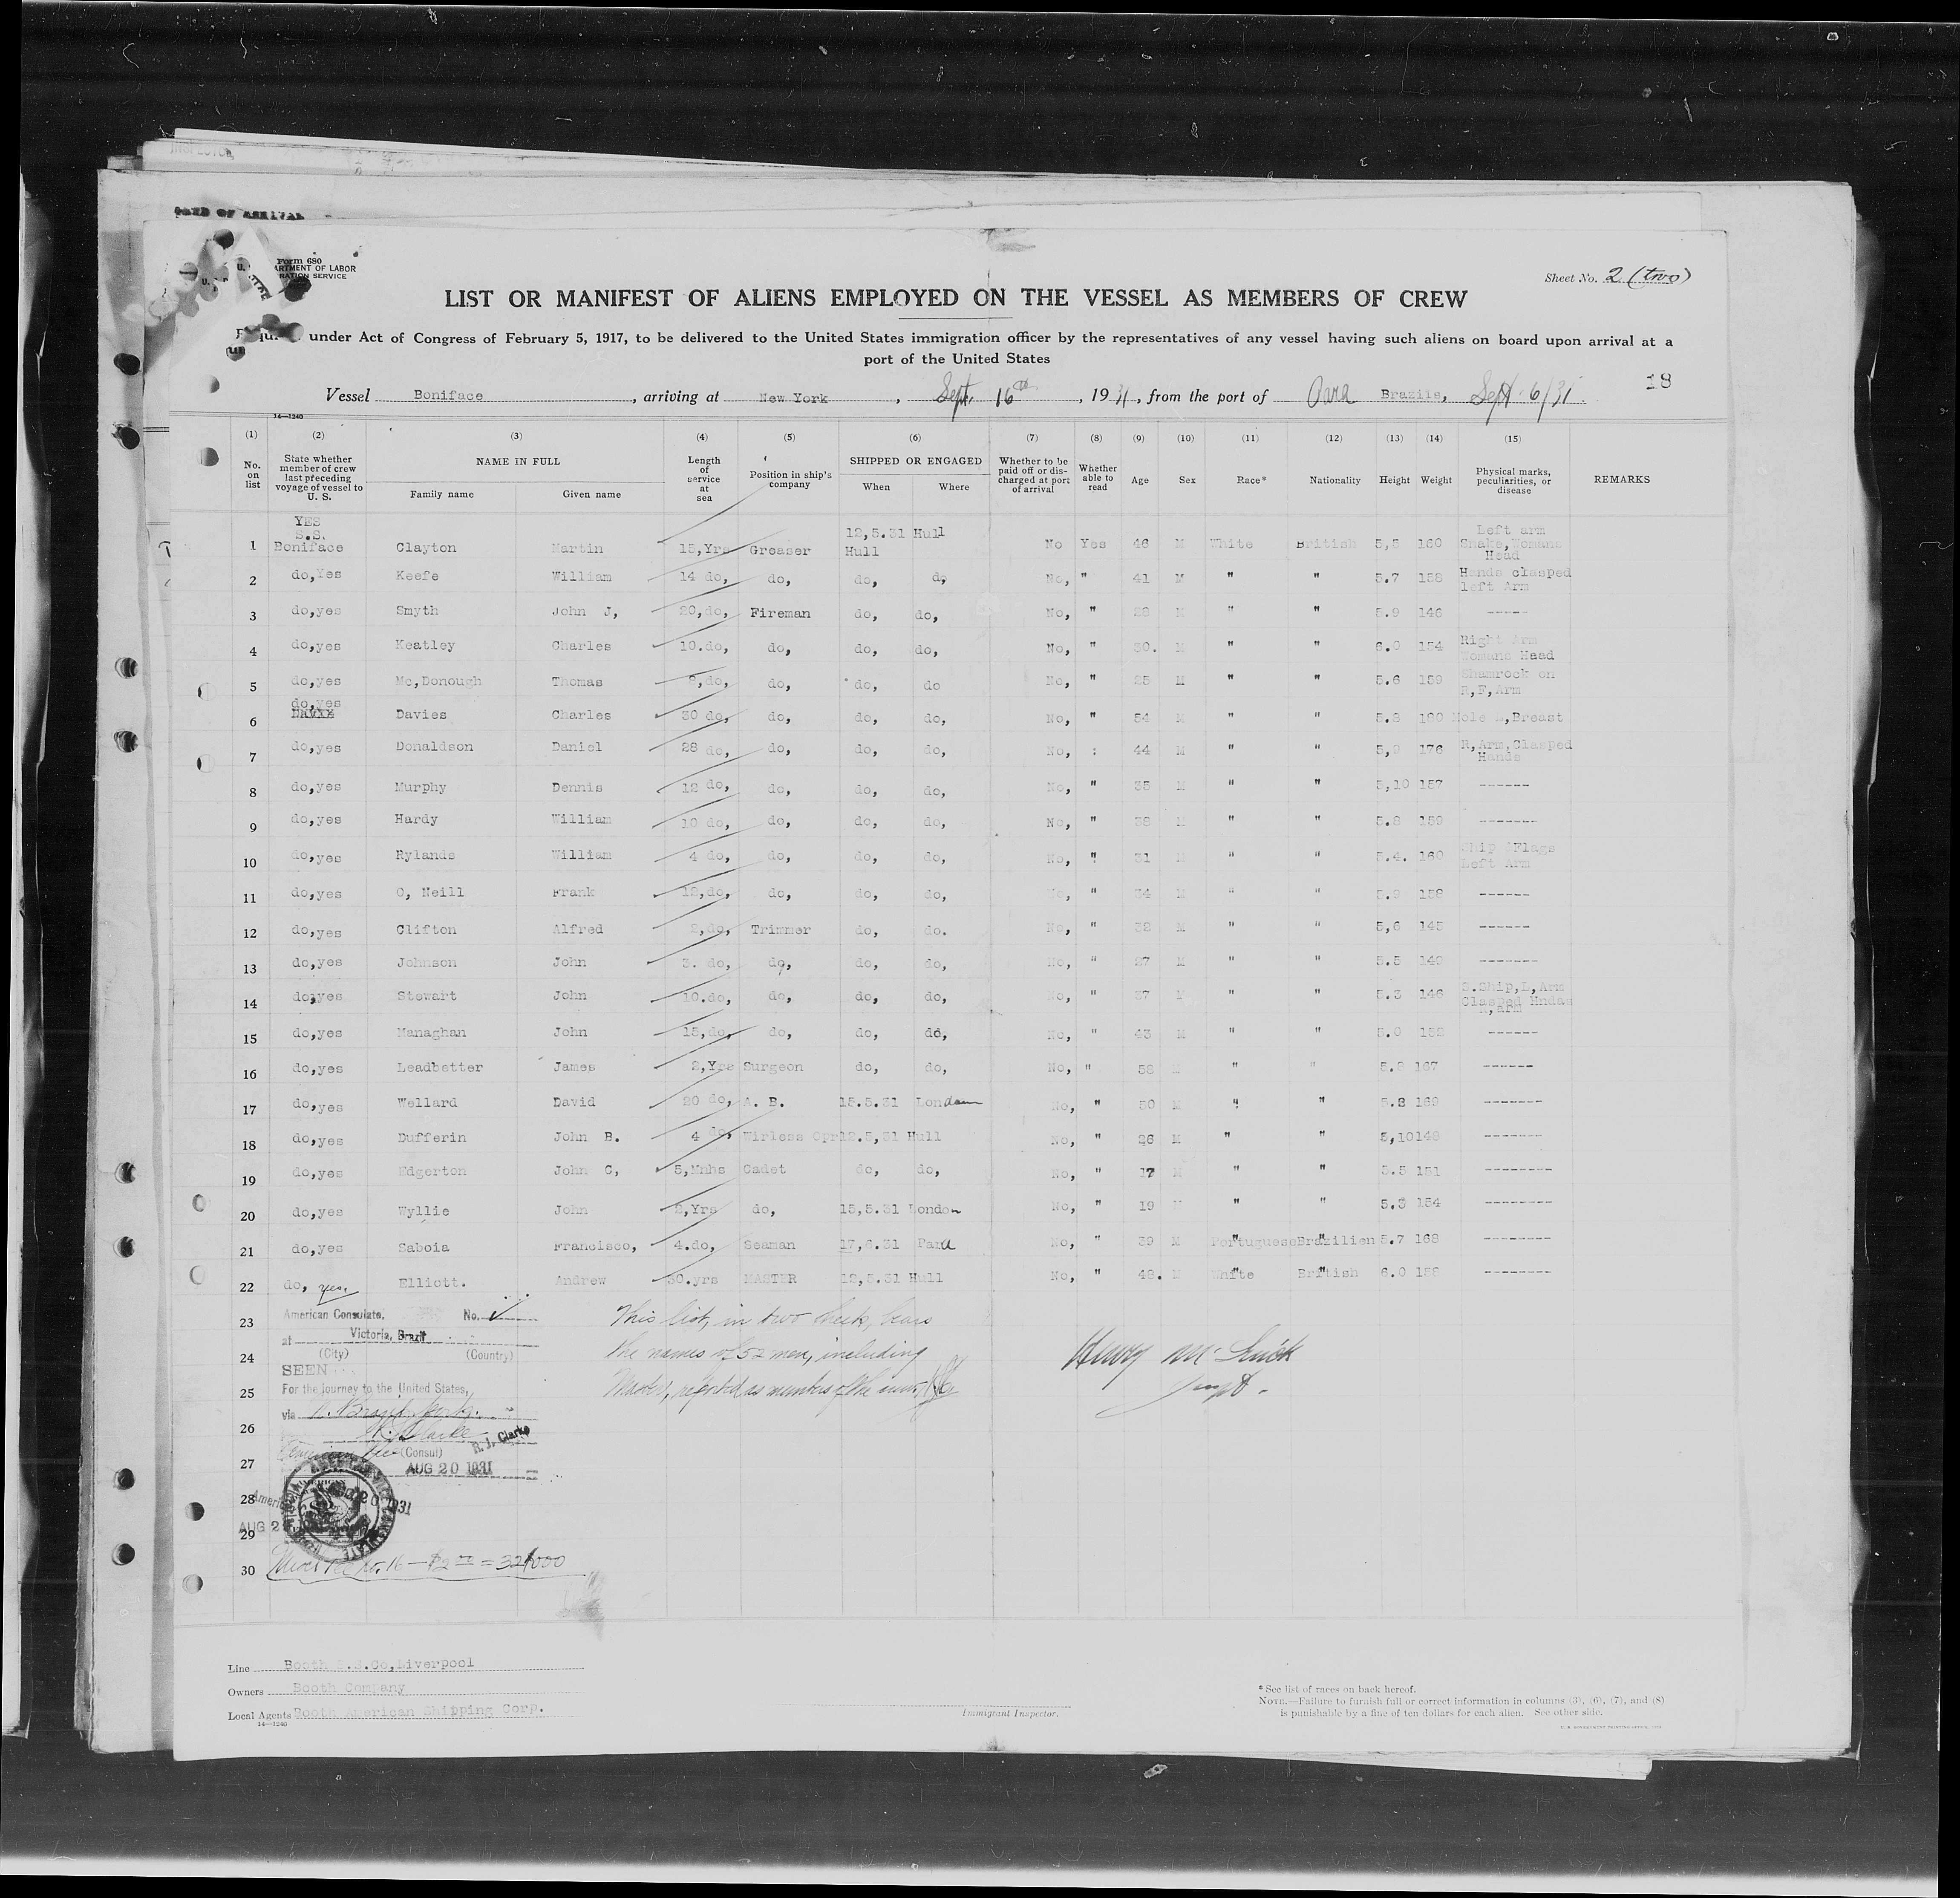 Form 680
U.
ARTMENT OF LABOR
RATION SERVICE
Sheet No. 2 (two)
LIST OR MANIFEST OF ALIENS EMPLOYED ON THE VESSEL AS MEMBERS OF CREW
under Act of Congress of February 5, 1917, to be delivered to the United States immigration officer by the representatives of any vessel having such aliens on board upon arrival at a
port of the United States
18
Vessel Boniface, arriving at New York, Sept. 16th, 1931, from the port of Para Brazils, Sept 6/31.
14—1240
(1) (2) (3) (4) (5) (6) (7) (8) (9) (10) (11) (12) (13) (14) (15)
No. on list State whether member of crew last preceding voyage of vessel to U. S. NAME IN FULL Family name Given name Length of service at sea Position in ship's company SHIPPED OR ENGAGED When Where Whether to be paid off or discharged at port of arrival Whether able to read Age Sex Race* Nationality Height Weight Physical marks, peculiarities, or disease REMARKS
1 YES S.S. Boniface Clayton Martin 15,Yrs Greaser 12,5.31 Hull Hull No Yes 46 M White British 5,5 160 Left arm Snake,Womans Head
2 do,Yes Keefe William 14 do, do, do, do, No, " 41 M " " 5.7 158 Hands clasped left Arm
3 do,yes Smyth John J, 20,do, Fireman do, do, No, " M " " 5.9 146 -----
4 do,yes Keatley Charles 10.do, do, do, do, No, " 30. M " " 6.0 154 Right Arm Womans Head
5 do,yes Mc,Donough Thomas do, do, do, do No, " 25 M " " 5.6 159 Shamrock on R,F,Arm
6 do,yes Davies Charles 30 do, do, do, do, No, " 54 M " " 5.8 190 Mole L,Breast
7 do,yes Donaldson Daniel 28 do, do, do, do, No, : 44 M " " 5,9 176 R,Arm,Clasped Hands
8 do,yes Murphy Dennis 12 do, do, do, do, No, " 35 M " " 5,10 157 ------
9 do,yes Hardy William 10 do, do, do, do, No, " 38 M " " 5.8 159 -------
10 do,yes Rylands William 4 do, do, do, do, No, " 31 M " " 5.4. 160 Ship Flags Left Arm
11 do,yes O, Neill Frank 12,do, do, do, do, No, " 34 M " " 5.9 158 ------
12 do,yes Clifton Alfred 2,do, Trimmer do, do. No, " 32 M " " 5,6 145 ------
13 do,yes Johnson John 3. do, do, do, do, No, " 27 M " " 5.5 -------
14 do,yes Stewart John 10.do, do, do, do, No, " 37 M " " 5.3 146 S.Ship,L,Arm Clasped Hndas R,arm
15 do,yes Managhan John 15,do, do, do, do, No, " 43 M " " 5.0 ------
16 do,yes Leadbetter James 2,Yrs Surgeon do, do, No, " 58 M " " 5.8 167 ------
17 do,yes Wellard David 20 do, A. B. 15.5.31 London No, " 50 M " " 5.8 169 -------
18 do,yes Dufferin John B. 4 do, Wirless Opr 12.5,31 Hull No, " 26 M " " 5,10 148 -------
19 do,yes Edgerton John C, 5,Mnhs Cadet do, do, No, " 17 M " " 5.5 151 --------
20 do,yes Wyllie John 2,Yrs do, 15,5.31 London No, " 19 M " " 5.3 154 --------
21 do,yes Saboia Francisco, 4.do, Seaman 17,6.31 Para No, " 39 M Portuguese Brazilien 5.7 168 --------
22 do, yes. Elliott. Andrew 30.yrs MASTER 12,5.31 Hull No, " 48. M White British 6.0 186 --------
23
24
25
26
27
28
29
30
American Consulate, No.
at Victoria, Brazil
(City) (Country)
SEEN
For the journey to the United States,
via
R. J. Clarke
(Consul)
AUG 20 1931
This list, in two sheets, bears
the names of 52 men, including
Master, reported as members of the crew.
Henry
Line Booth S.S.Co,Liverpool
Owners Booth Company
Local Agents Booth American Shipping Corp.
14—1240
Immigrant Inspector.
* See list of races on back hereof.
NOTE.—Failure to furnish full or correct information in columns (3), (6), (7), and (8)
is punishable by a fine of ten dollars for each alien. See other side.